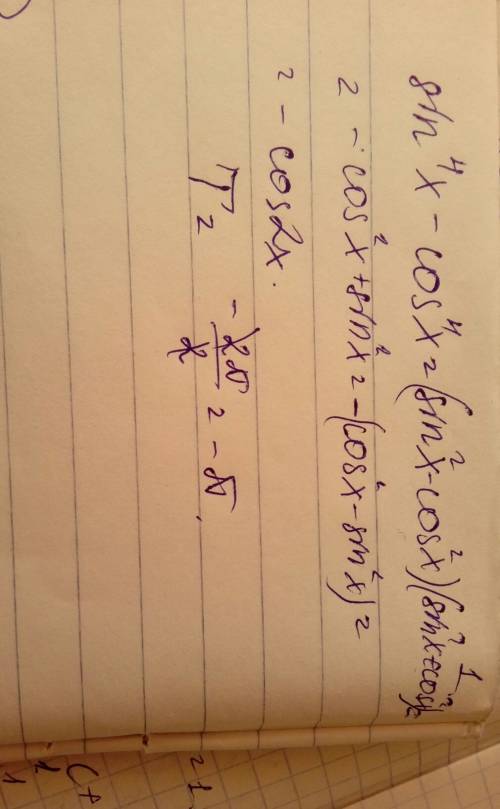 sin⁴x - cos⁴x = (sin²x - cos²x)(sin²x + cos²x) 1
= -cos²x + sin²x = -(cos²x - sin²x) =
= - cos2x.
T = -2π/2 = -π.